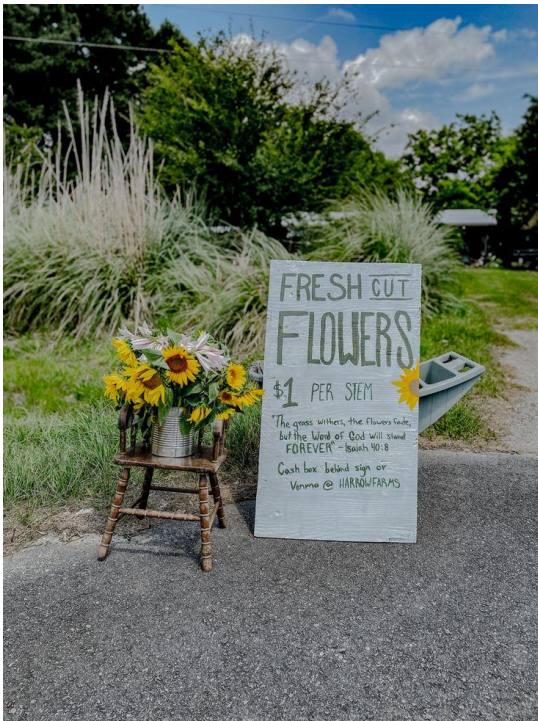 FRESH CUT
FLOWERS
$1 PER STEM
"The grass withers, the flowers fade,
but the Word of God will stand
FOREVER" - Isaiah 40:8
Cash box behind sign or
Venmo @ HARROWFARMS